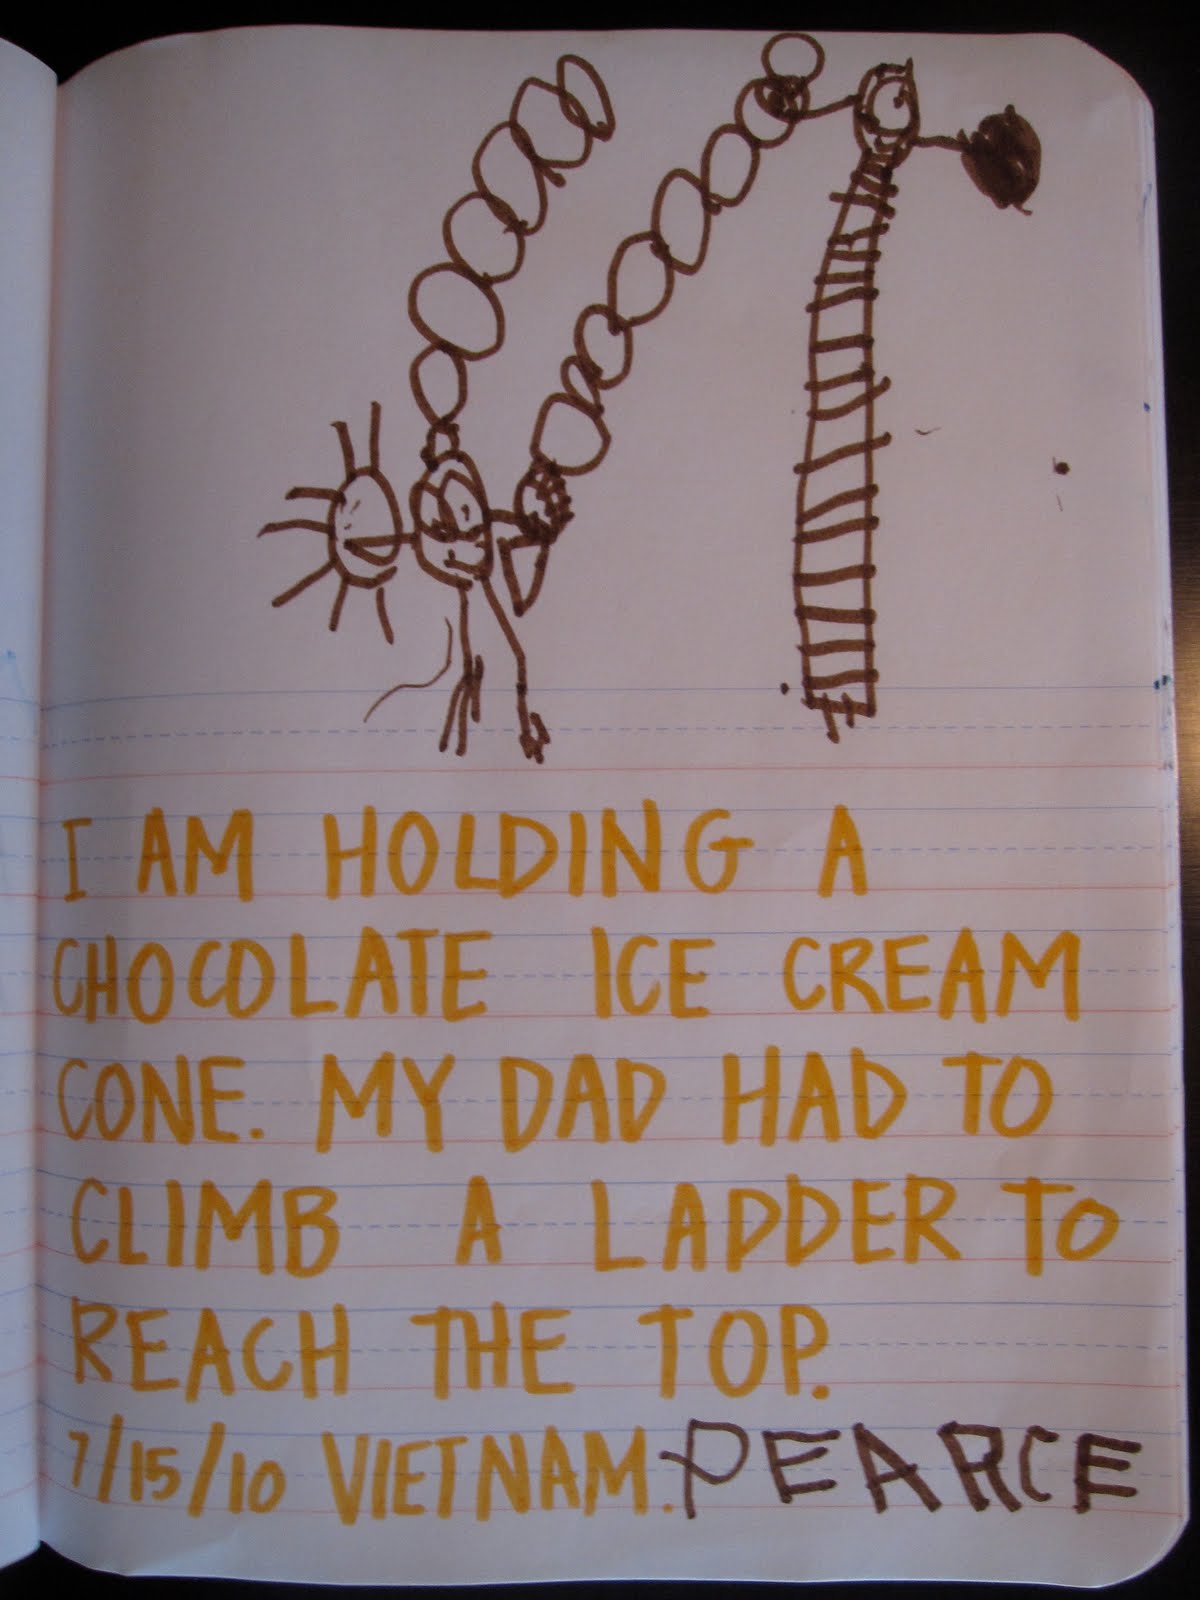 I AM HOLDING A
CHOCOLATE ICE CREAM
CONE. MY DAD HAD TO
CLIMB A LADDER TO
REACH THE TOP.
7/15/10 VIETNAM. PEARCE